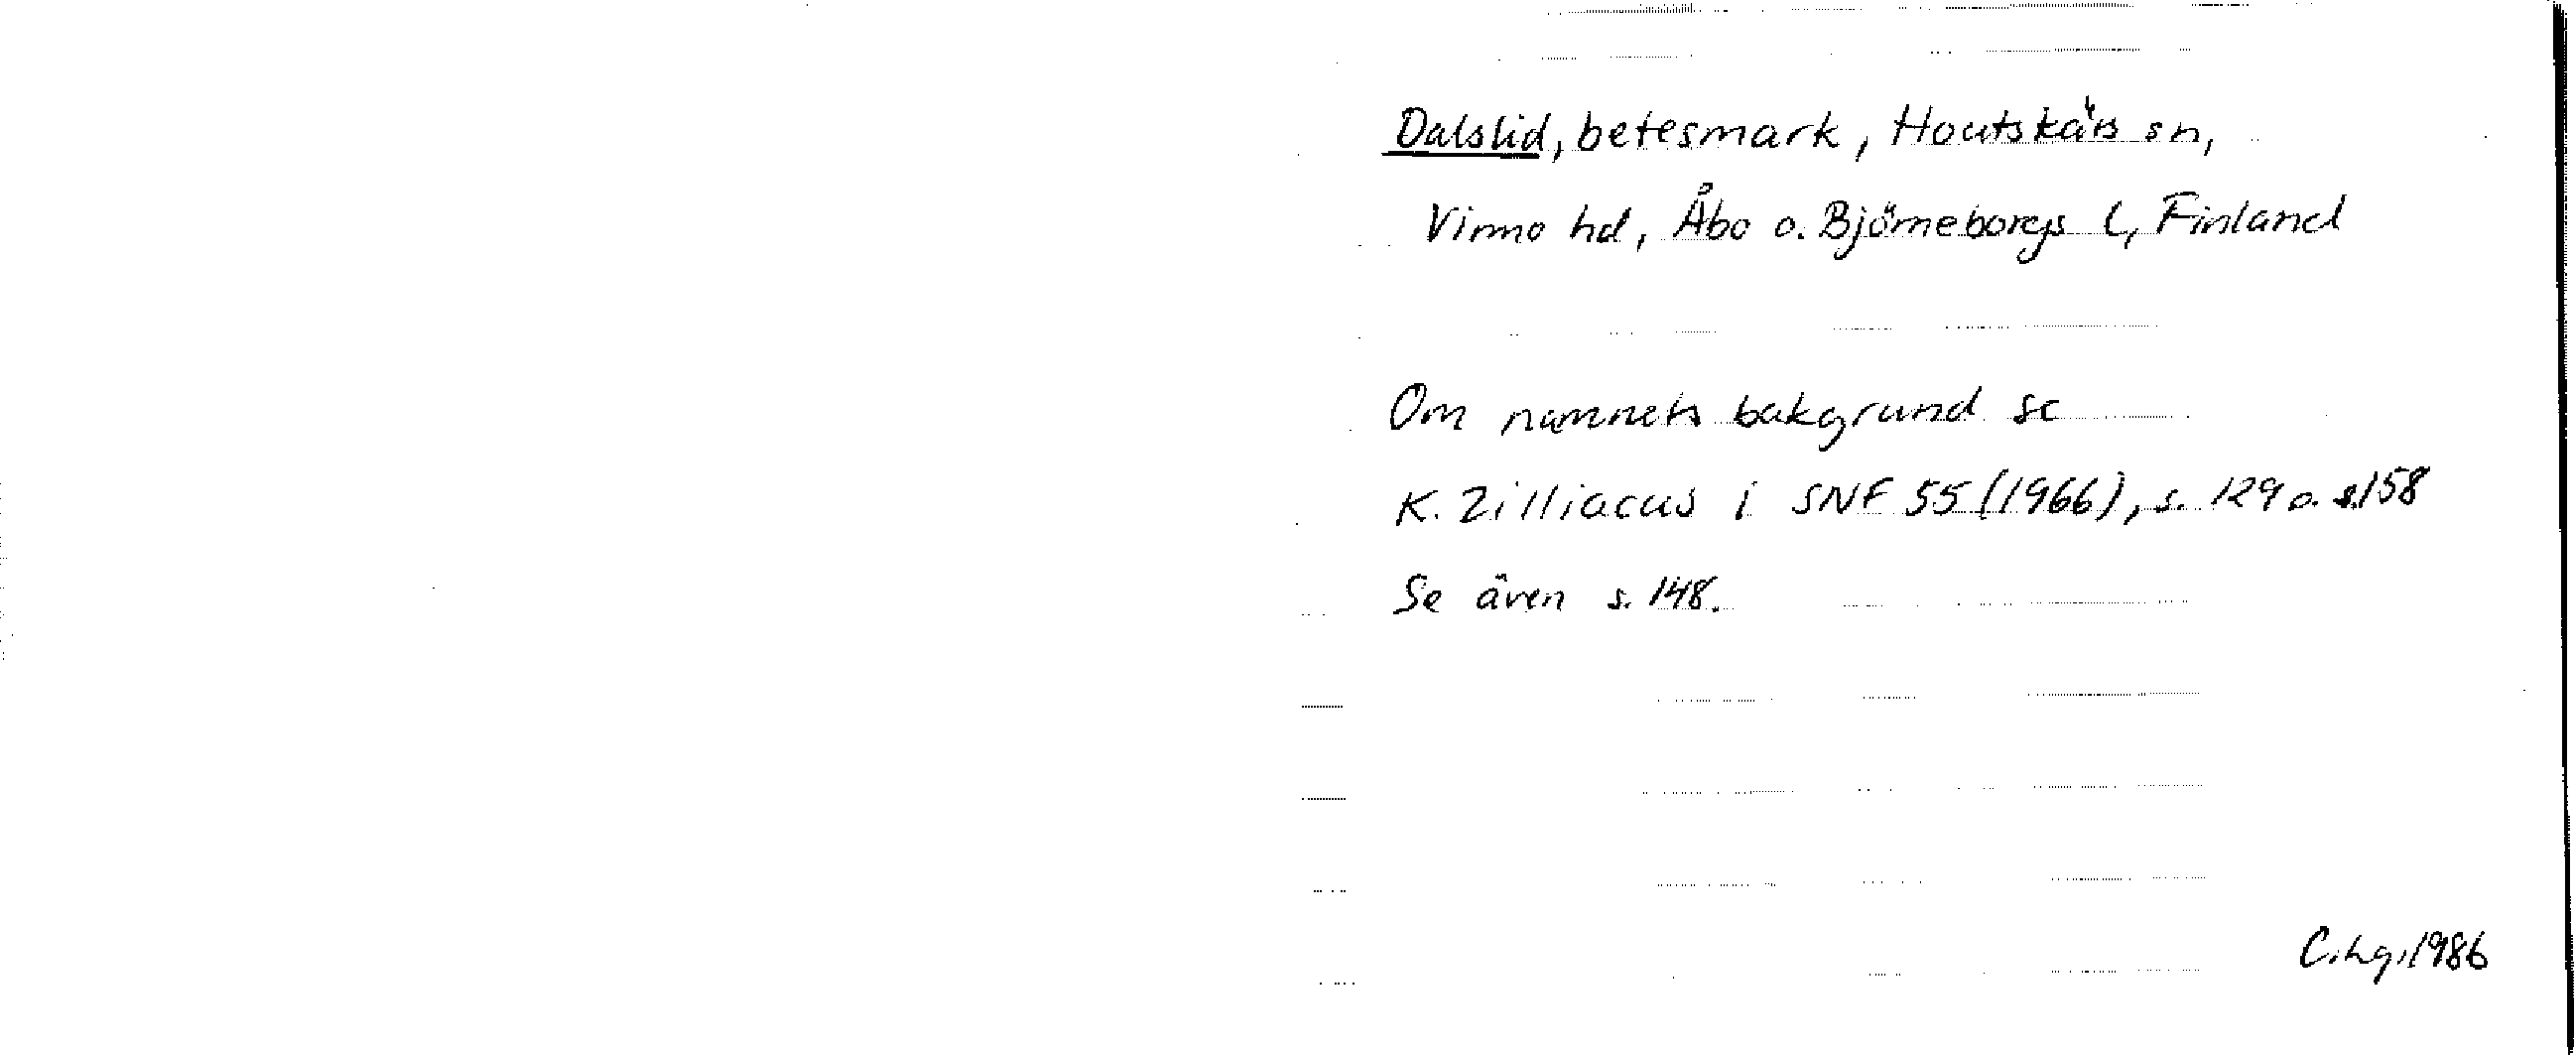 Dalslid, betesmark, Houtskärs sn,
Virmo hd, Åbo o. Björneborgs l, Finland
Om namnets bakgrund se
K. Zilliacus i SNF 55 (1966), s. 129 o. s.158
Se även s. 148.
C.hg,1986